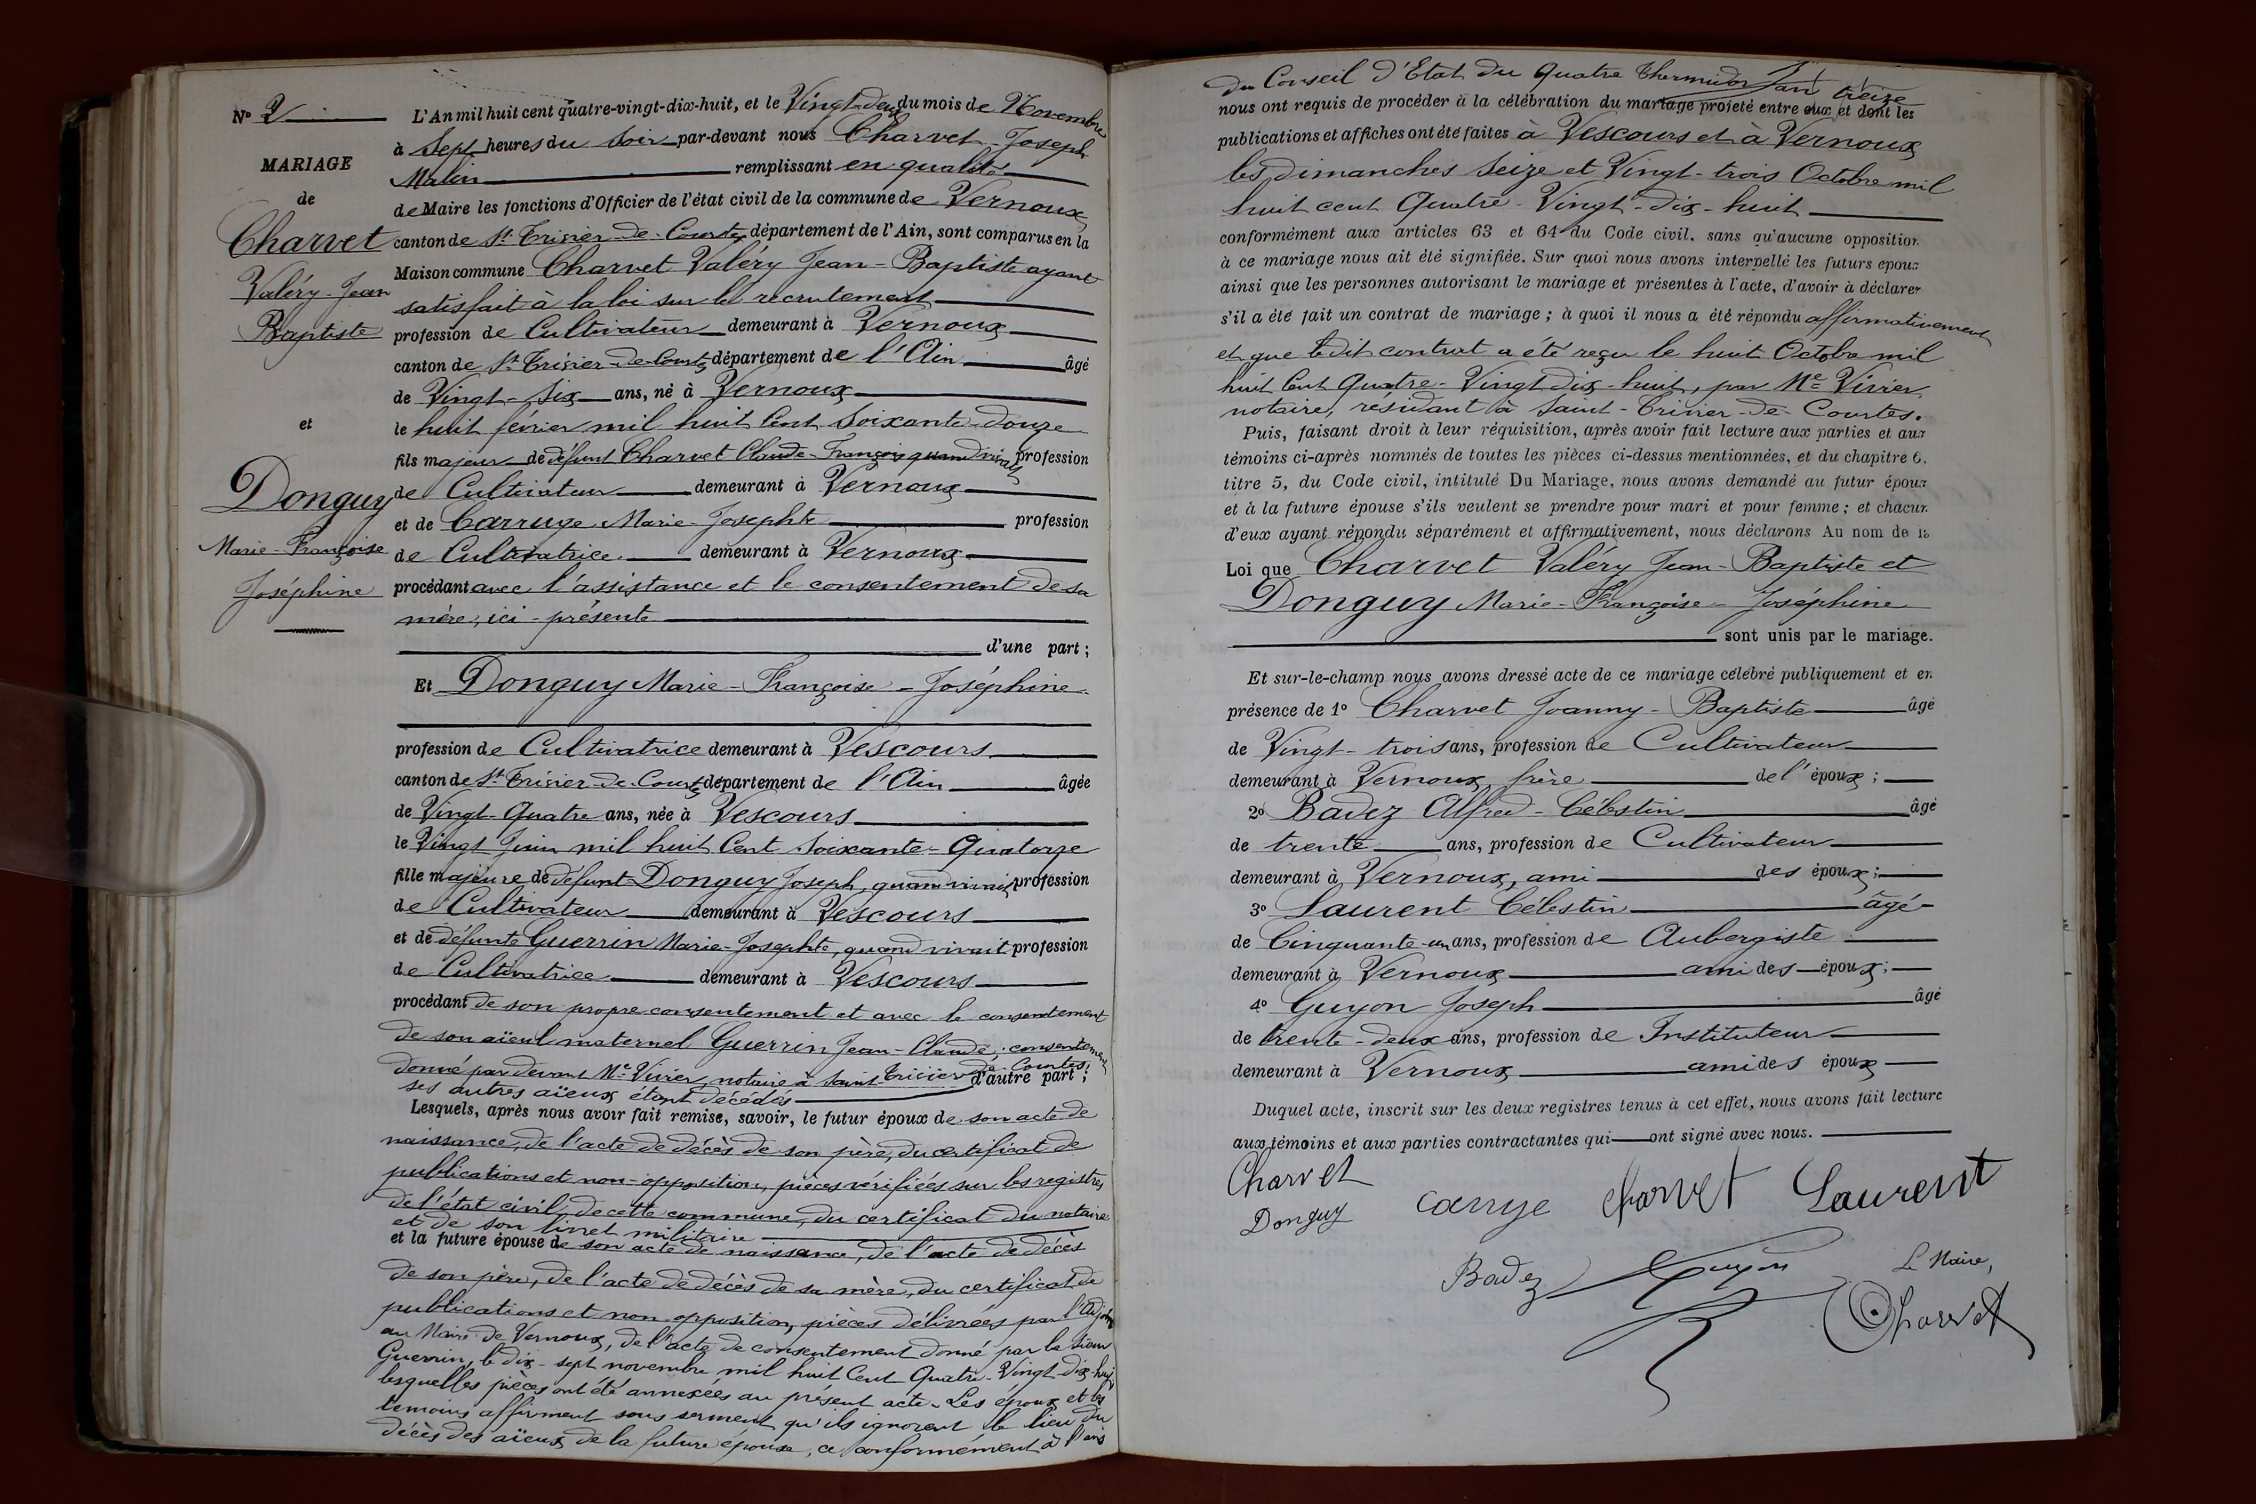 N° 2
MARIAGE
de
Charvet
Valéry-Jean
Baptiste
et
Donguy
Marie-Françoise
Joséphine
L'An mil huit cent quatre-vingt-dix-huit, et le Vingt-deux du mois de Novembre
à Sept heures du soir par-devant nous Charvet Joseph
remplissant en qualité
de Maire les fonctions d'Officier de l'état civil de la commune de Vernoux
canton de St Trivier-de-Courtes, département de l'Ain, sont comparus en la
Maison commune Charvet Valéry Jean-Baptiste ayant
satisfait à la loi sur le recrutement
profession de Cultivateur demeurant à Vernoux
canton de St Trivier-de-Courtes département de l'Ain âgé
de Vingt-Six ans, né à Vernoux
le huit février mil huit Cent Soixante-douze
fils majeur de défunt Charvet Claude-François quand vivait profession
de Cultivateur demeurant à Vernoux
et de Carruge Marie-Josephte profession
de Cultivatrice demeurant à Vernoux
procédant avec l'assistance et le consentement de sa
mère, ici-présente
d'une part;
Et Donguy Marie-Françoise-Joséphine
profession de Cultivatrice demeurant à Vescours
canton de St Trivier-de-Courtes département de l'Ain âgée
de Vingt-Quatre ans, née à Vescours
le Vingt Juin mil huit Cent Soixante-Quatorze
fille majeure de défunt Donguy Joseph, quand vivait profession
de Cultivateur demeurant à Vescours
et de défunte Guerrin Marie-Josephte, quand vivait profession
de Cultivatrice demeurant à Vescours
procédant de son propre consentement et avec le consentement
de son aïeul maternel Guerrin Jean-Claude; consentement
donné par devant Me Vivier, notaire à Saint Trivier-de-Courtes, d'autre part;
ses autres aïeux étant décédés
Lesquels, après nous avoir fait remise, savoir, le futur époux de son acte de
naissance, de l'acte de décès de son père, du certificat de
publications et non-opposition, pièces vérifiées sur les registres
de l'état civil de cette commune, du certificat du notaire
et de son livret militaire
et la future épouse de son acte de naissance, de l'acte de décès
de son père, de l'acte de décès de sa mère, du certificat de
publications et non opposition, pièces délivrées par l'Adjoint
au Maire de Vernoux, de l'acte de consentement donné par le sieur
Guerrin, le dix-sept novembre mil huit Cent Quatre-Vingt dix-huit
lesquelles pièces ont été annexées au présent acte. Les époux et les
témoins affirment sous serment qu'ils ignorent le lieu du
décès des aïeux de la future épouse, ce conformément à l'avis
du Conseil d'Etat du Quatre Thermidor an treize
nous ont requis de procéder à la célébration du mariage projeté entre eux et dont les
publications et affiches ont été faites à Vescours et à Vernoux
les dimanches Seize et Vingt-trois Octobre mil
huit cent Quatre-Vingt-dix-huit
conformément aux articles 63 et 64 du Code civil, sans qu'aucune opposition
à ce mariage nous ait été signifiée. Sur quoi nous avons interpellé les futurs époux
ainsi que les personnes autorisant le mariage et présentes à l'acte, d'avoir à déclarer
s'il a été fait un contrat de mariage; à quoi il nous a été répondu affirmativement
et que ledit contrat a été reçu le huit Octobre mil
huit Cent Quatre-Vingt dix-huit, par Me Vivier,
notaire, résidant à Saint-Trivier-de-Courtes.
Puis, faisant droit à leur réquisition, après avoir fait lecture aux parties et aux
témoins ci-après nommés de toutes les pièces ci-dessus mentionnées, et du chapitre 6,
titre 5, du Code civil, intitulé Du Mariage, nous avons demandé au futur époux
et à la future épouse s'ils veulent se prendre pour mari et pour femme; et chacun
d'eux ayant répondu séparément et affirmativement, nous déclarons Au nom de la
Loi que Charvet Valéry Jean-Baptiste et
Donguy Marie-Françoise-Joséphine
sont unis par le mariage.
Et sur-le-champ nous avons dressé acte de ce mariage célébré publiquement et en
présence de 1° Charvet Joanny-Baptiste âgé
de Vingt-trois ans, profession de Cultivateur
demeurant à Vernoux, frère de l'époux;
2° Badez Alfred-Célestin âgé
de trente ans, profession de Cultivateur
demeurant à Vernoux, ami des époux;
3° Laurent Célestin âgé
de Cinquante-un ans, profession de Aubergiste
demeurant à Vernoux ami des époux;
4° Guyon Joseph âgé
de trente-deux ans, profession de Instituteur
demeurant à Vernoux ami des époux
Duquel acte, inscrit sur les deux registres tenus à cet effet, nous avons fait lecture
aux témoins et aux parties contractantes qui ont signé avec nous.
Charvet
Donguy
Carruge
Charvet
Laurent
Badez
Guyon
Le Maire,
Charvet